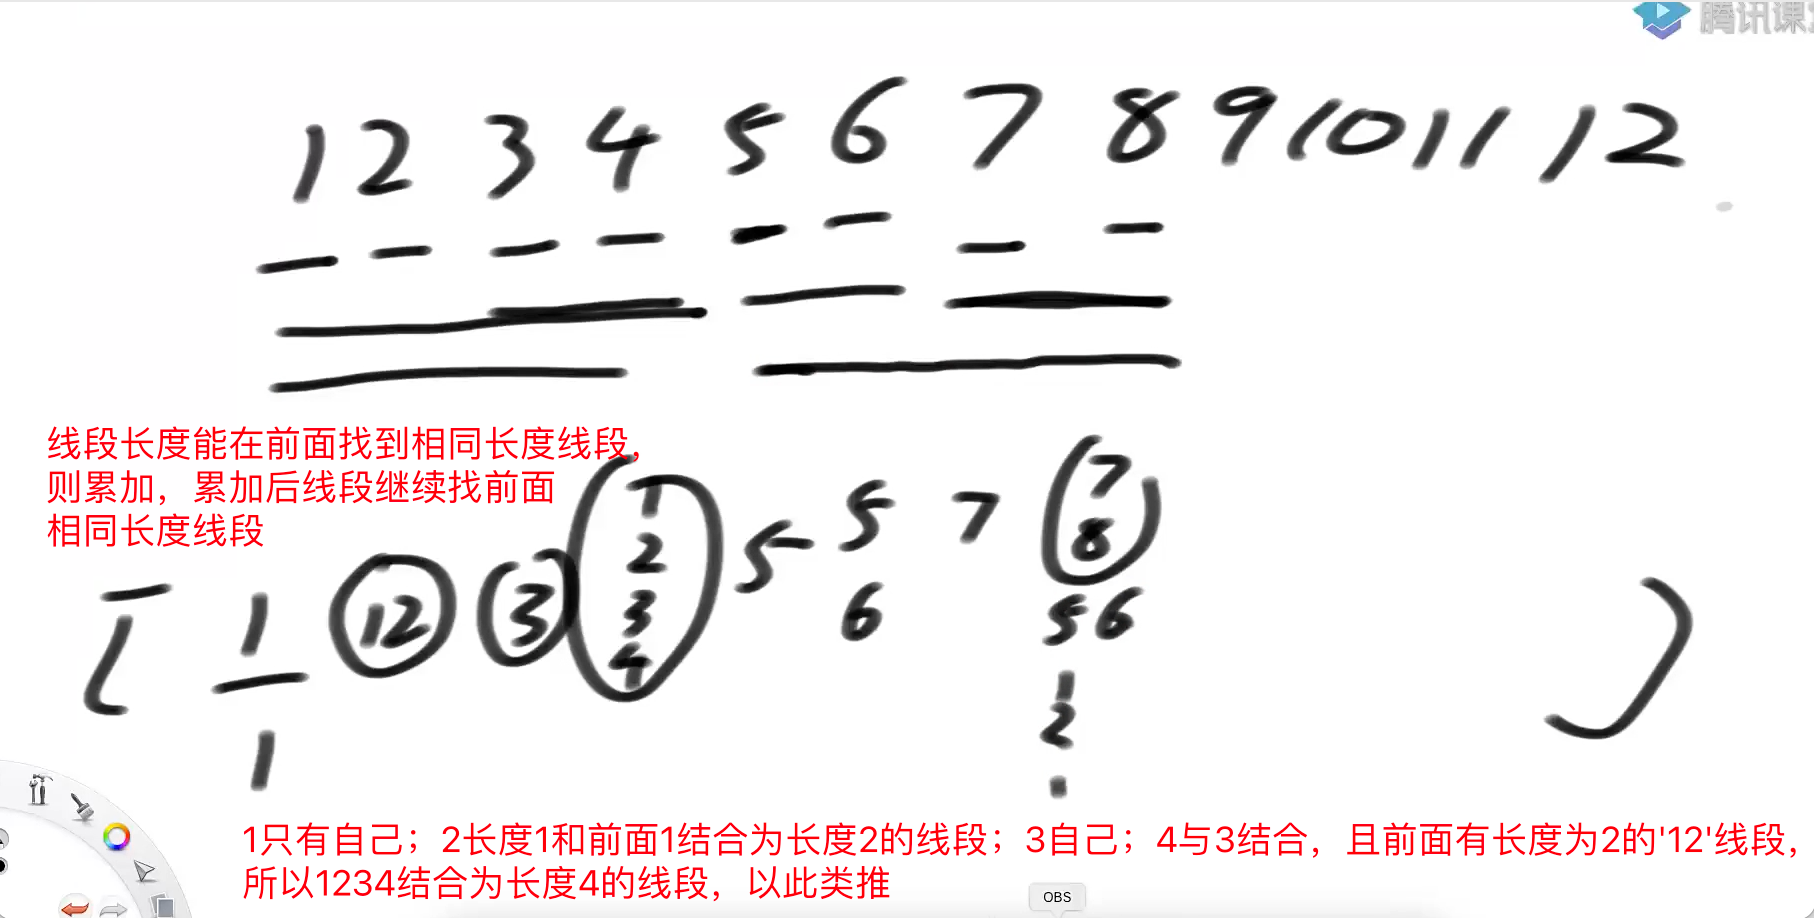 腾讯课
1 2 3 4 5 6 7 8 9 10 11 12
线段长度能在前面找到相同长度线段,
则累加，累加后线段继续找前面
相同长度线段
[ 1 12 3 1 5 5 7 7 ]
2 8
3 6 5 6
4 1
1 2
1只有自己；2长度1和前面1结合为长度2的线段；3自己；4与3结合，且前面有长度为2的'12'线段，
所以1234结合为长度4的线段，以此类推
OBS